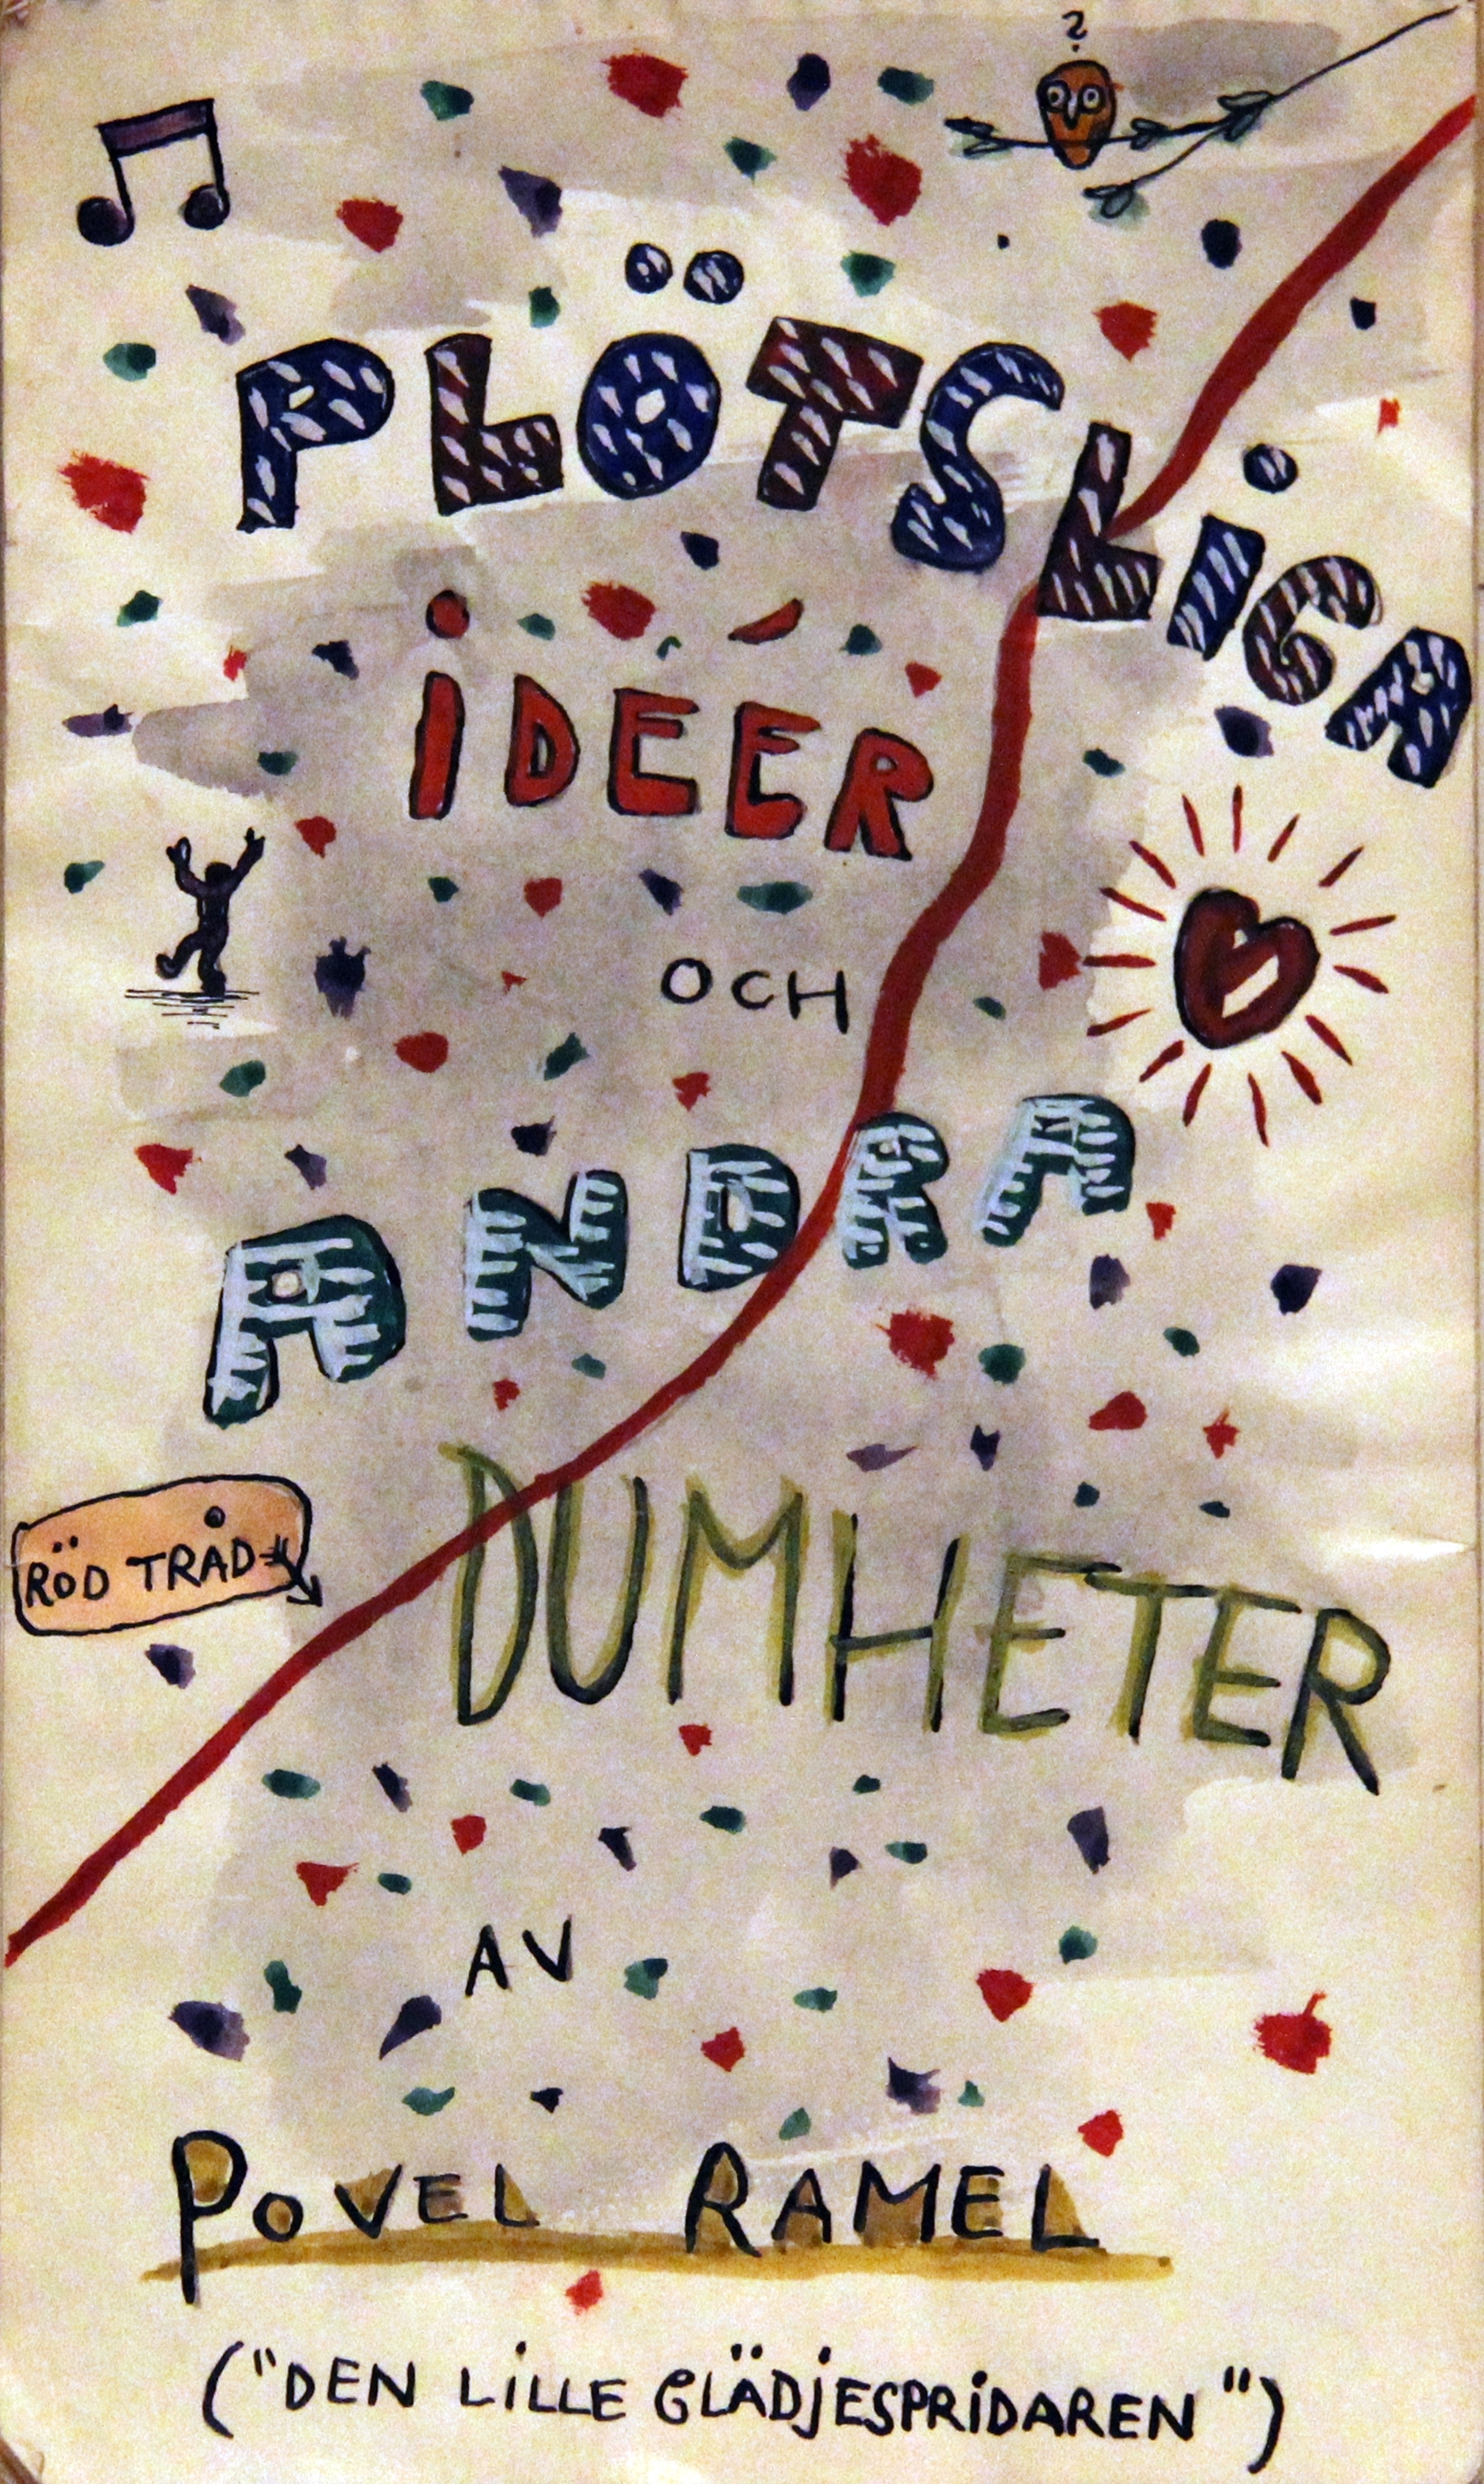 ?
PLÖTSLIGA
IDÉER
OCH
ANDRA
RÖD TRÅD
DUMHETER
AV
POVEL RAMEL
("DEN LILLE GLÄDJESPRIDAREN")